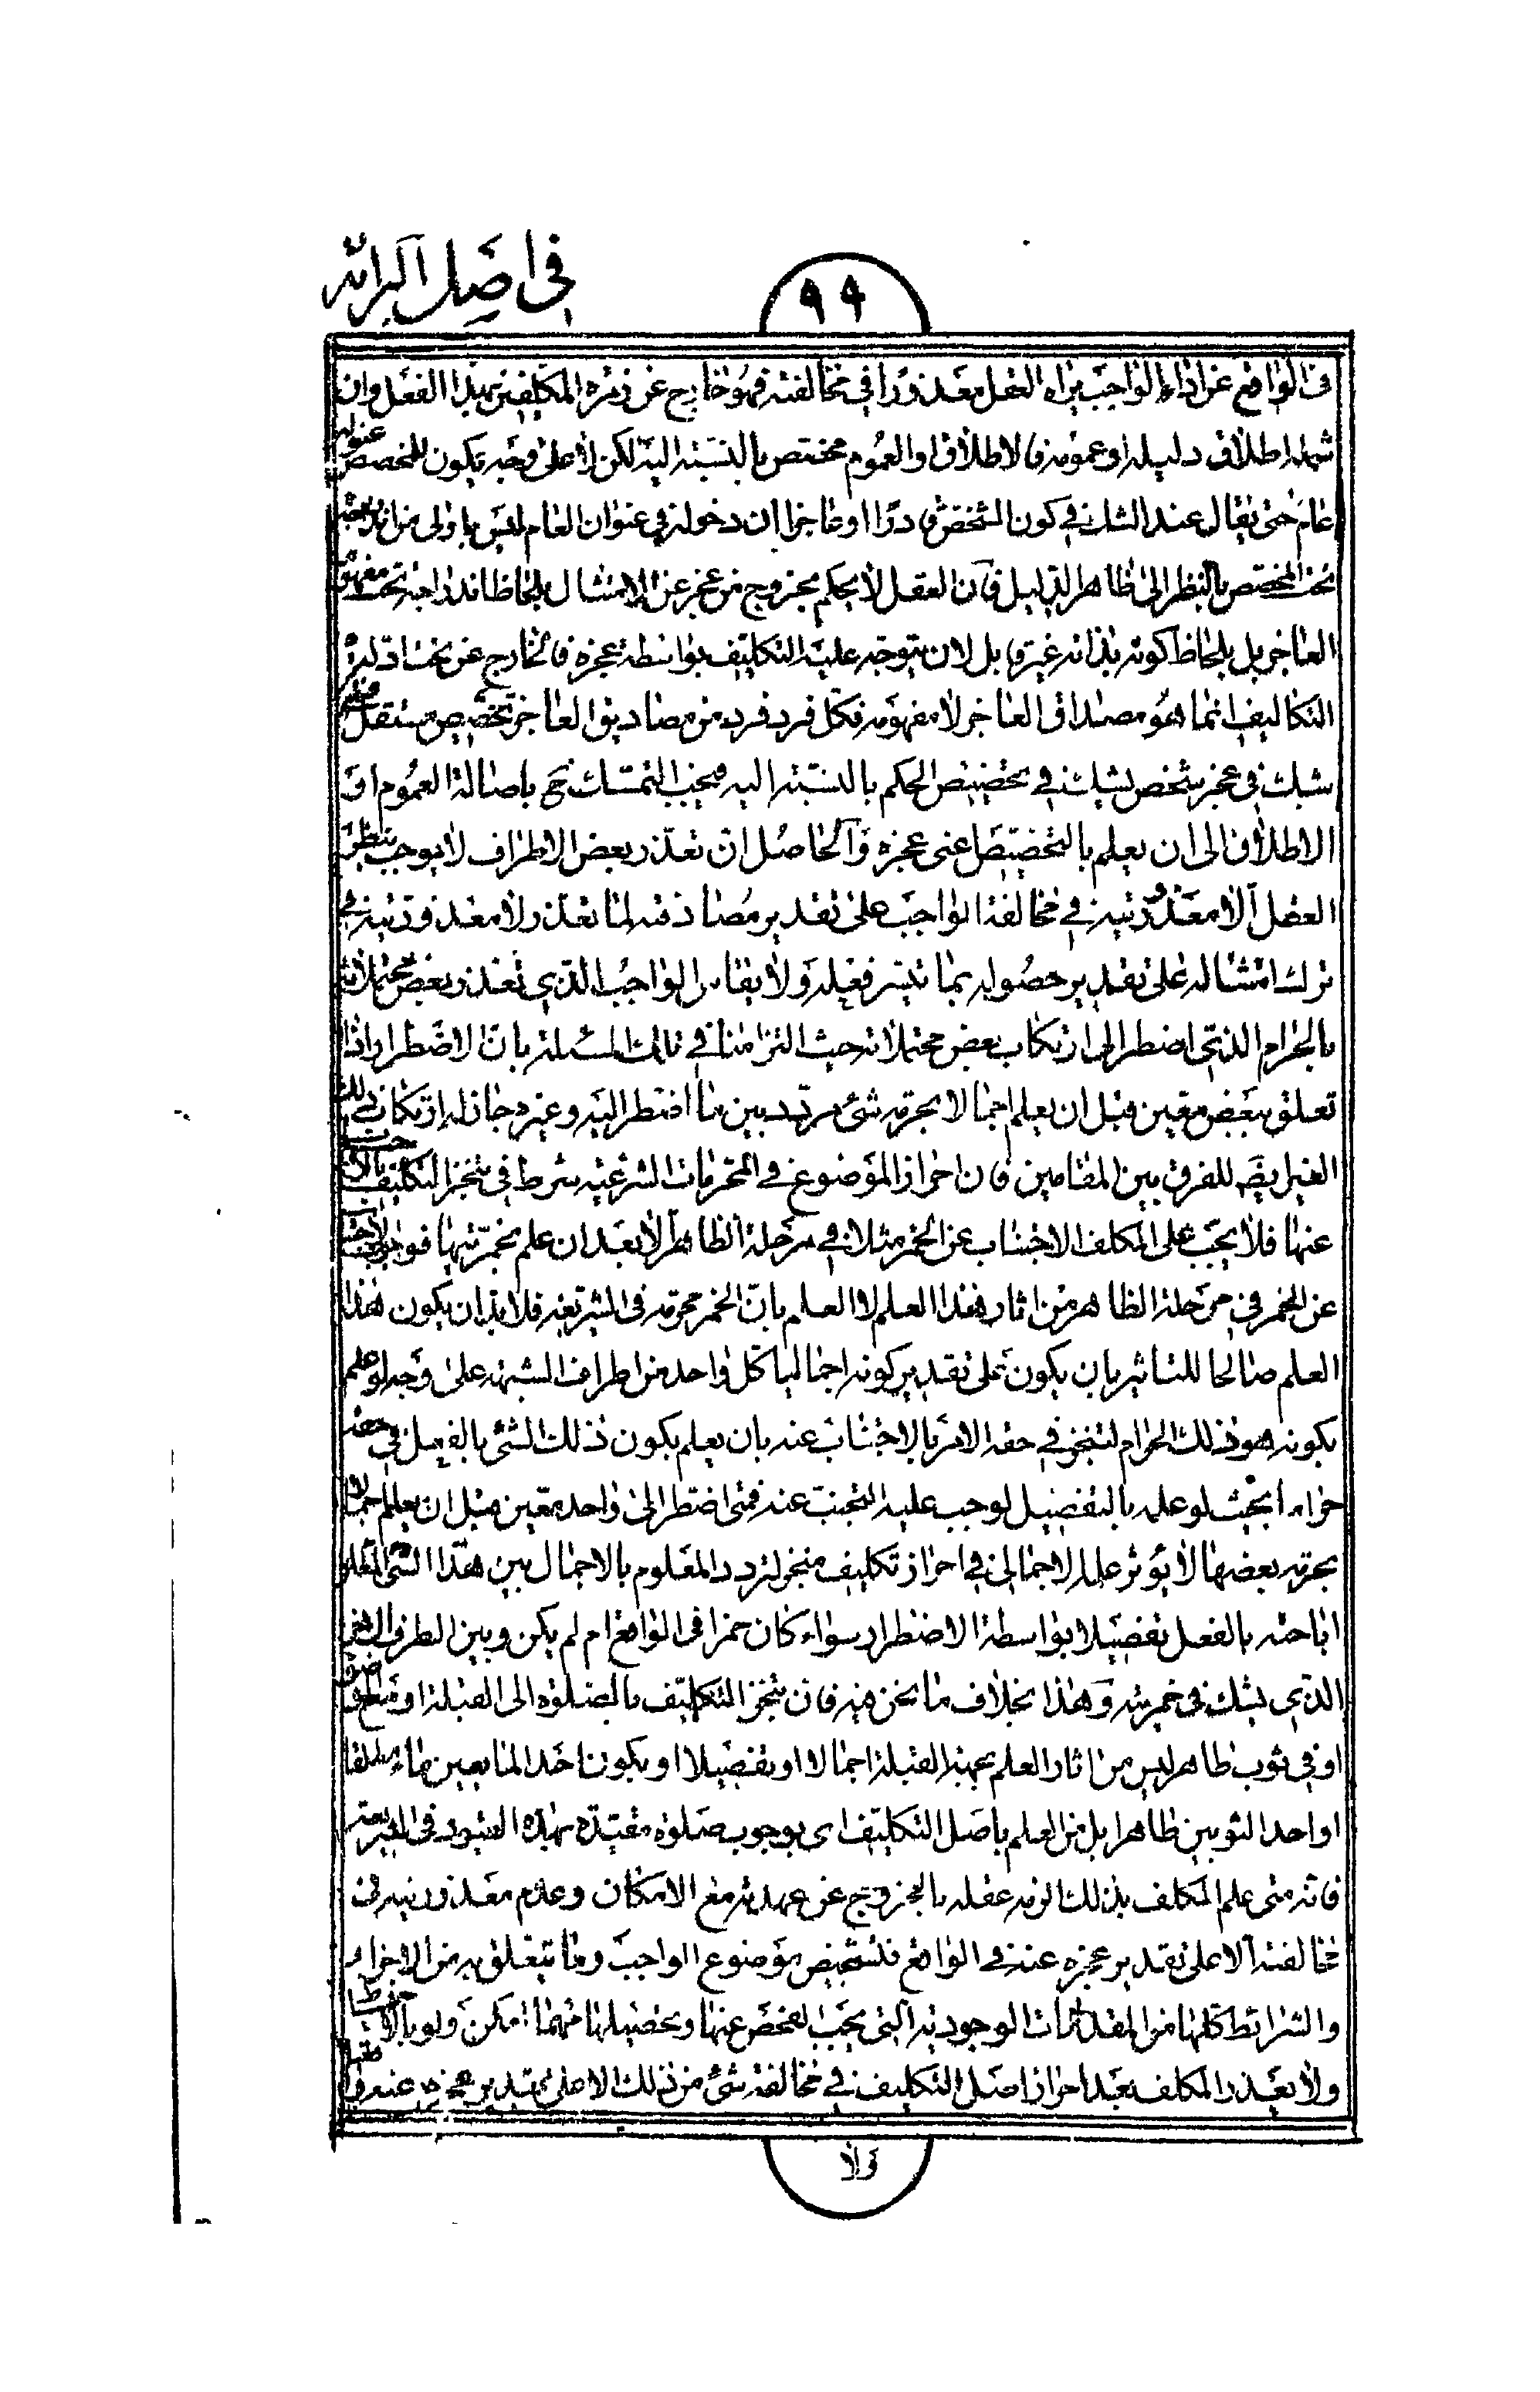 في اصل البرائة
٩٩
في الواقع عن اداء الواجب يراه العقل معذورا في مخالفته فهو خارج عن زمرة المكلفين بهذا الفعل وان
شمله اطلاق دليله او عمومه فالاطلاق او العموم مختص بالنسبة اليه لكن لا على وجه يكون للمخصص عنوان
عام حتى يقال عند الشك في كون الشخص قادرا او عاجزا ان دخوله في عنوان العام ليس باولى من اندراجه
تحت المختص بالنظر الى ظاهر الدليل فان العقل لا يحكم بخروج من عجز عن الامتثال بلحاظ اندراجه تحت مفهوم
العاجز بل بلحاظ كونه بذاته غير قابل لان يتوجه عليه التكليف بواسطة عجزه فالخارج عن تحت ادلة
التكاليف انما هو مصداق العاجز لا مفهومه فكل فرد فرد من مصاديق العاجز تخصيص مستقل فلو
شك في عجز شخص يشك في تخصيص الحكم بالنسبة اليه فيجب التمسك ح باصالة العموم او
الاطلاق الى ان يعلم بالتخصيص اعنى عجزه والحاصل ان تعذر بعض الاطراف لا يوجب بنظر
العقل الا معذوريته في مخالفة الواجب على تقدير مصادفته لما تعذر ولا معذوريته في
ترك امتثاله على تقدير حصوله بما تيسر فعله ولا يقاس الواجب الذي تعذر بعض محتملاته
بالحرام الذي اضطر الى ارتكاب بعض محتملاته حيث التزامنا في تلك المسئلة بان الاضطرار اذا
تعلق ببعض معين قبل ان يعلم اجمالا بحرمة شئ مردد بين ما اضطر اليه وغيره جاز له ارتكاب ذلك
الغير ايضا للفرق بين المقامين فان احراز الموضوع في المحرمات الشرعية شرط في تنجز التكليف بالاجتناب
عنها فلا يجب على المكلف الاجتناب عن الخمر مثلا في مرحلة الظاهر الا بعد ان علم بخمريتها فوجوب الاجتناب
عن الخمر في مرحلة الظاهر من اثار هذا العلم لا العلم بان الخمر محرمة في الشريعة فلا بد ان يكون هذا
العلم صالحا للتاثير بان يكون على تقدير كونه اجماليا كل واحد من اطراف الشبهة على وجه لو علم
بكونه هو ذلك الحرام لتنجز في حقه الامر بالاجتناب عنه بان يعلم بكون ذلك الشئ بالفعل في حقه
حراما بحيث لو علمه بالتفصيل لوجب عليه التجنب عنه فمتى اضطر الى واحد معين قبل ان يعلم اجمالا
بحرمة بعضها لا يؤثر علمه الاجمالي في احراز تكليف منجز لتردد المعلوم بالاجمال بين هذا الشئ المعلوم
اباحته بالفعل تفصيلا بواسطة الاضطرار سواء كان خمرا في الواقع ام لم يكن وبين الطرف الاخر
الذي يشك في خمريته وهذا بخلاف ما نحن فيه فان تنجز التكليف بالصلوة الى القبلة او مع الوضوء
او في ثوب طاهر ليس من اثار العلم بجهة القبلة اجمالا او تفصيلا او بكون احد المايعين ماء مطلقا
او احد الثوبين طاهرا بل من العلم باصل التكليف اى بوجوب صلوة مقيدة بهذه القيود في الشريعة
فانه متى علم المكلف بذلك الزمه عقله بالخروج عن عهدته مع الامكان وعدم معذوريته في
مخالفته الا على تقدير عجزه عنه في الواقع فتشخيص موضوع الواجب وما يتعلق به من الاجزاء
والشرائط كلها من المقدمات الوجودية التي يجب الفحص عنها وتحصيلها مهما امكن ولو بالاحتياط
ولا يعذر المكلف بعد احراز اصل التكليف في مخالفة شئ من ذلك الا على تقدير عجزه عنه في
ولا